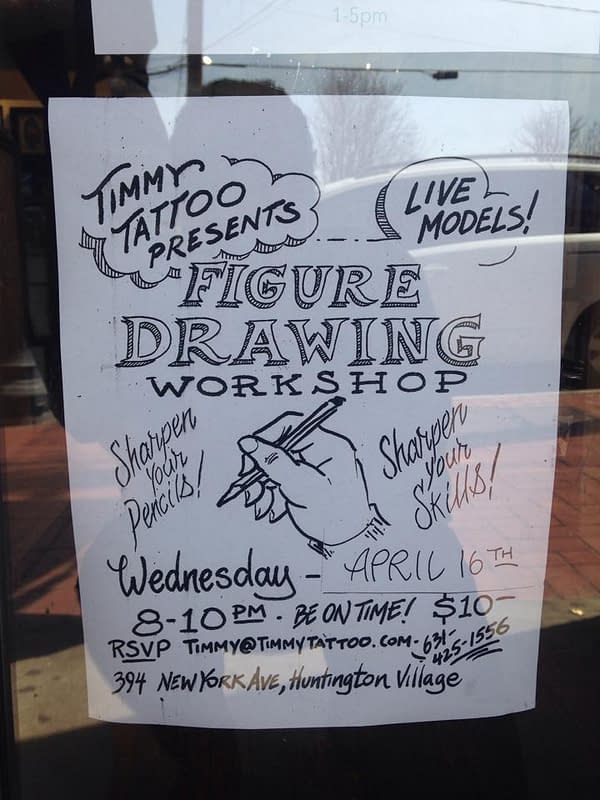 1-5pm
TIMMY
TATTOO
PRESENTS
LIVE
MODELS!
FIGURE
DRAWING
WORKSHOP
Sharpen
your
Pencils!
Sharpen
your
Skills!
Wednesday - APRIL 16TH
8-10 PM - BE ON TIME! $10-
RSVP TIMMY@TIMMYTATTOO.COM - 631-
425-1556
394 NEW YORK AVE, Huntington Village